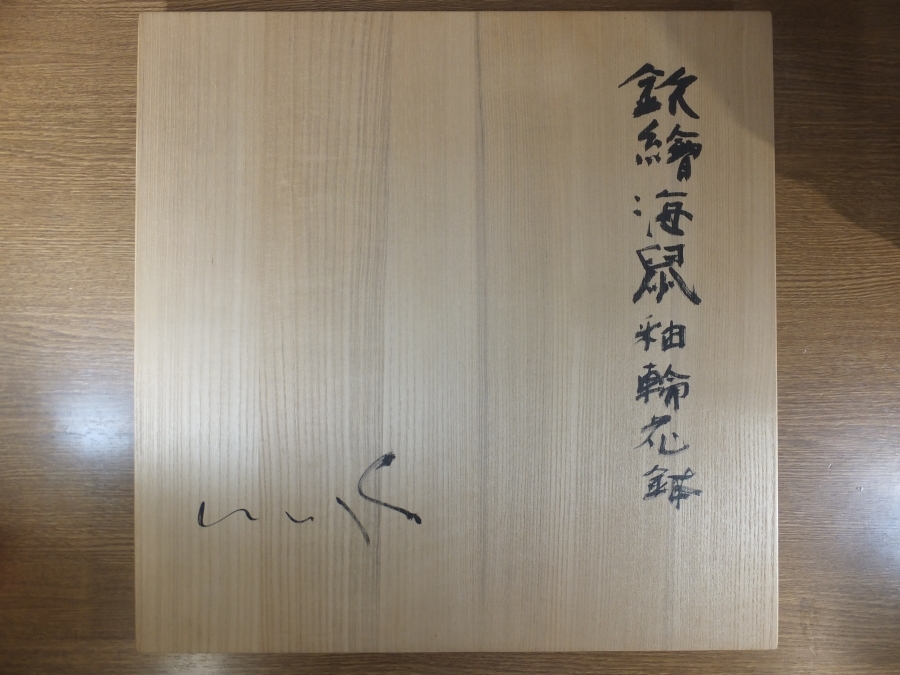 鉄繪海鼠釉輪花鉢